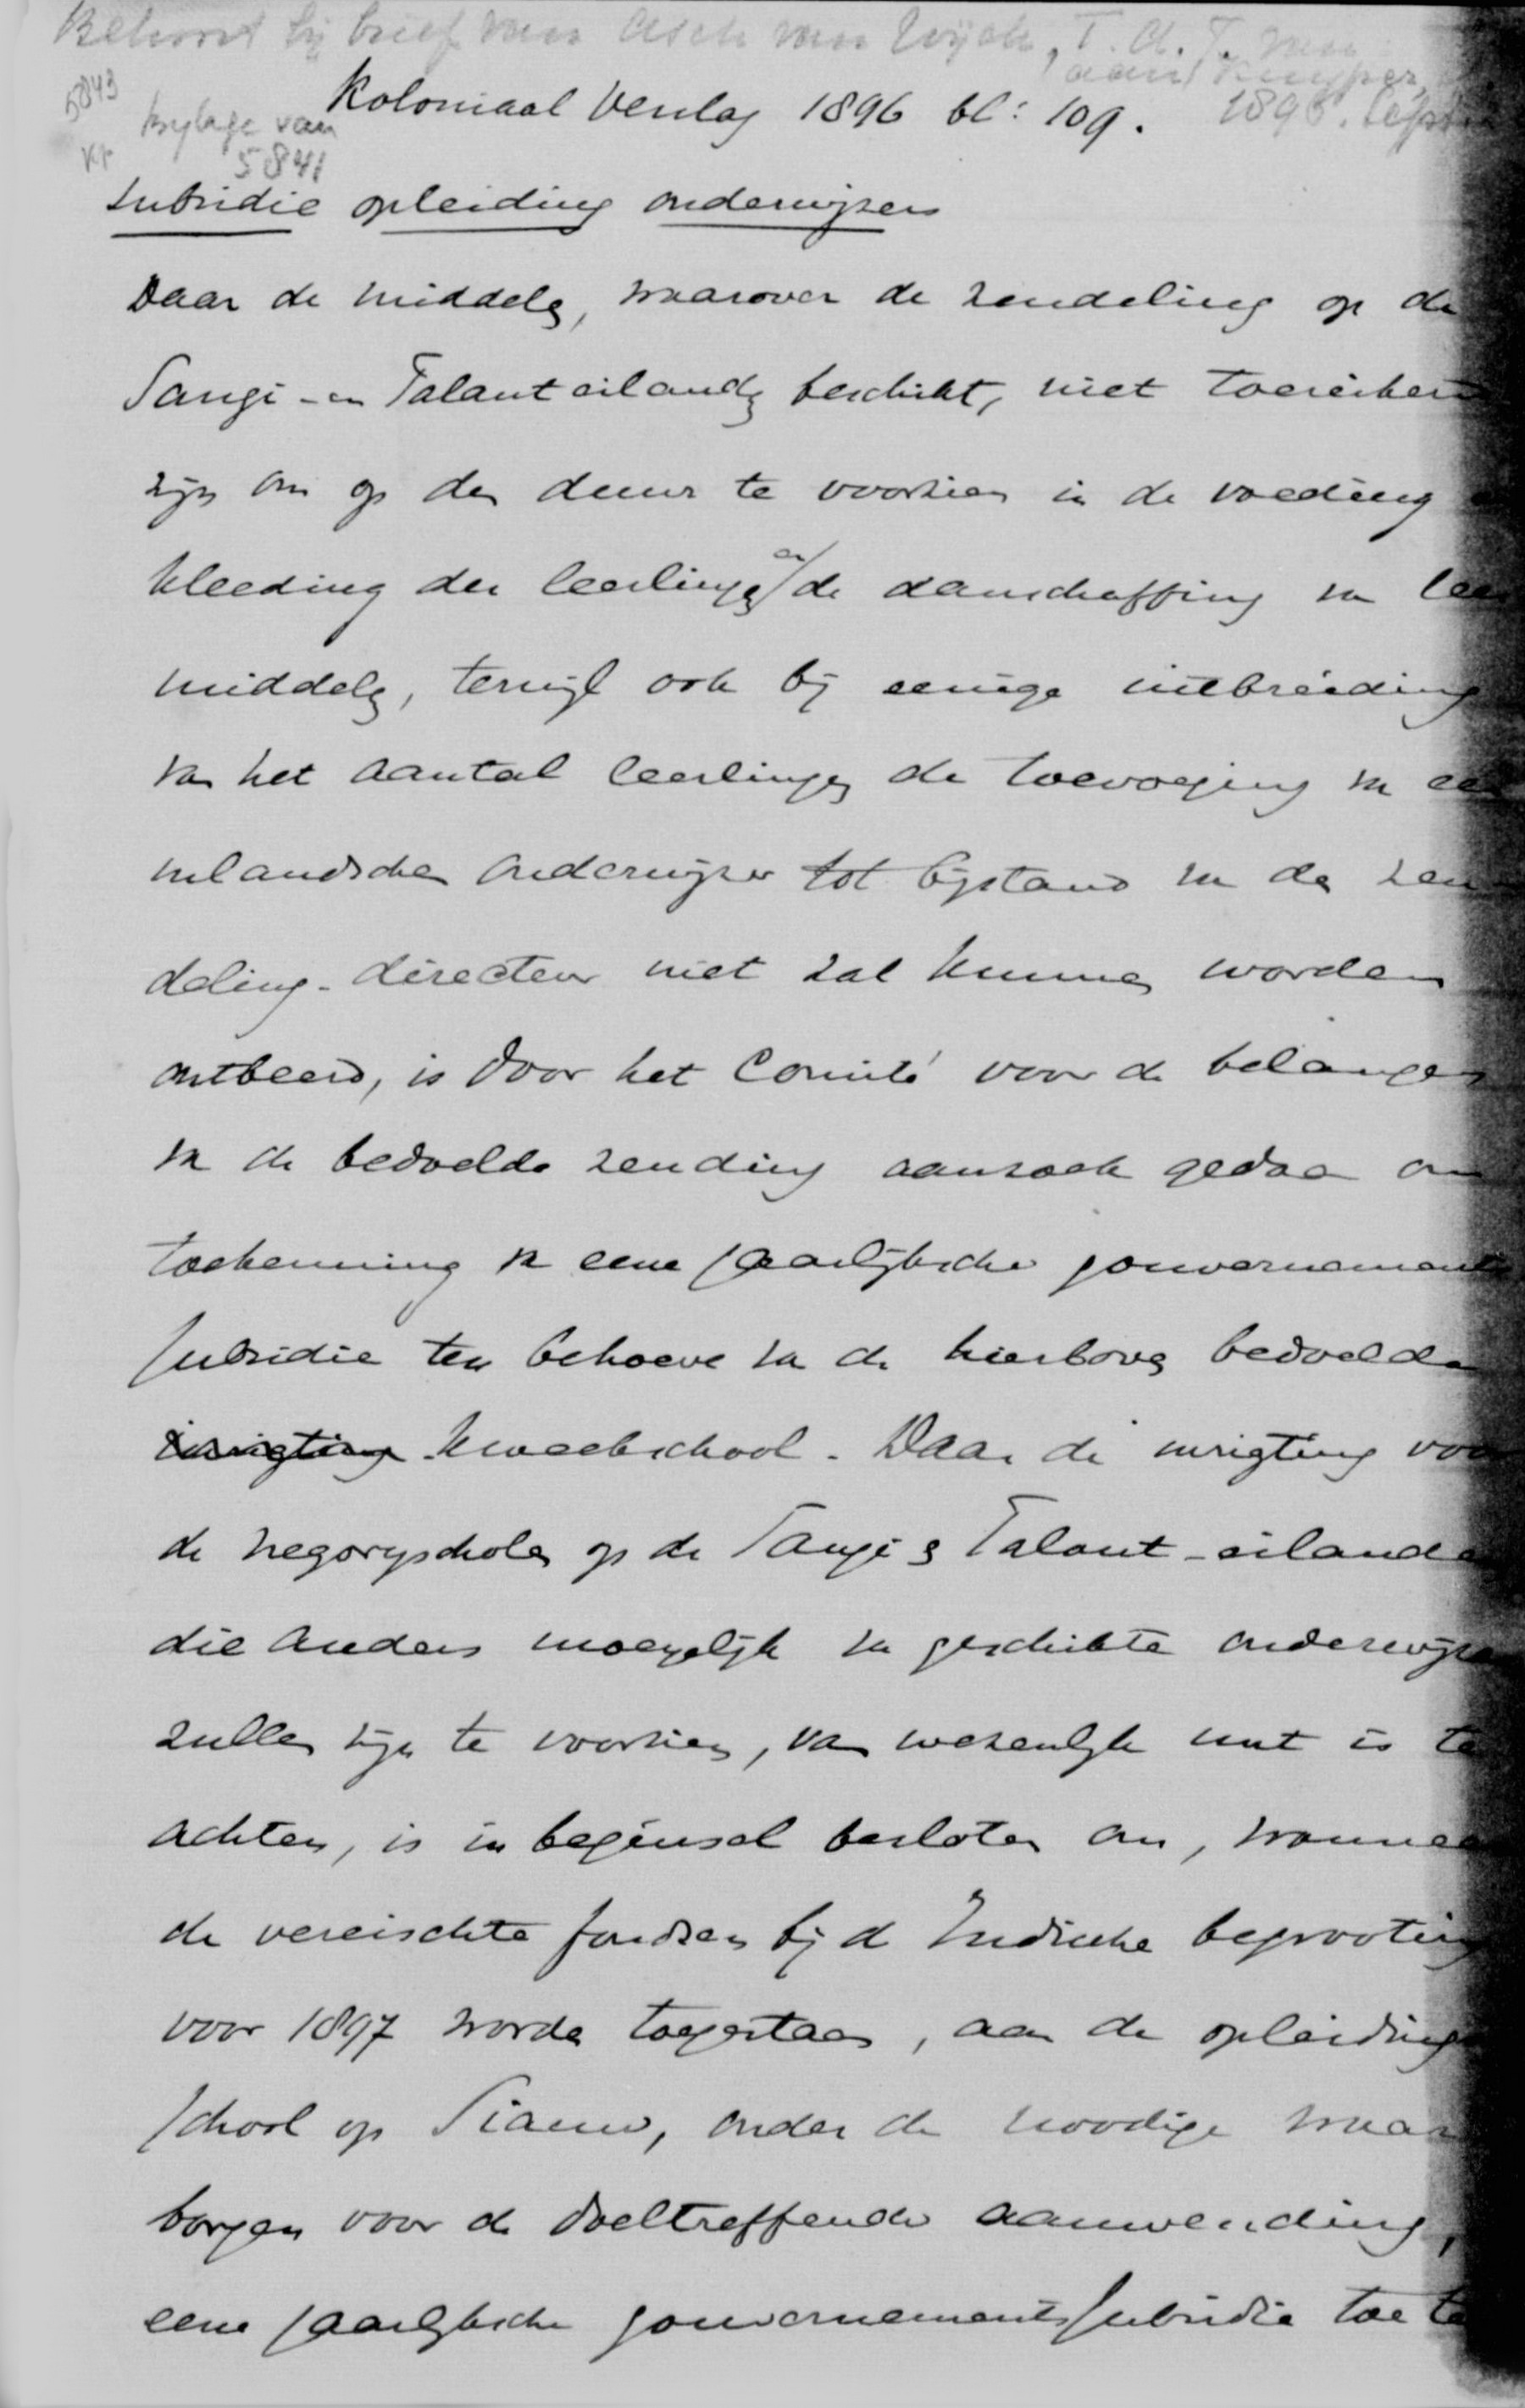 Behoort bij brief van Asch van Wijck, T. A. J. van
aan Kuyper,
5843
Koloniaal Verslag 1896 bl: 109.
1896. Sept
bylage van
5841
Kp
Subsidie opleiding onderwijzers
Daar de middelen, waarover de zendeling op de
Sangi- en Talaut eilanden beschikt, niet toereikend
zijn om op den duur te voorzien in de voeding
kleeding der leerlingen en de aanschaffing van leer
middelen, terwijl ook bij eenige uitbreiding
van het aantal leerlingen de toevoeging van een
inlandschen onderwijzer tot bijstand van den zen-
deling-directeur niet zal kunnen worden
ontbeerd, is door het Comité voor de belangen
van de bedoelde zending aanzoek gedaan om
toekenning van eene jaarlijksche gouvernements
subsidie ten behoeve van de hierboven bedoelde
inrigting kweekschool. Daar de inrigting voor
de negoryscholen op de Sangi & Talaut-eilanden
die anders moeyelijk van geschikte onderwijzers
zullen zijn te voorzien, van wezenlijk nut is te
achten, is in beginsel besloten om, wanneer
de vereischte fondsen bij de Indische begrooting
voor 1897 worden toegestaan, aan de opleidings
school op Siauw, onder de noodige waar
borgen voor de doeltreffende aanwending,
eene jaarlijksche gouvernementssubsidie toe te